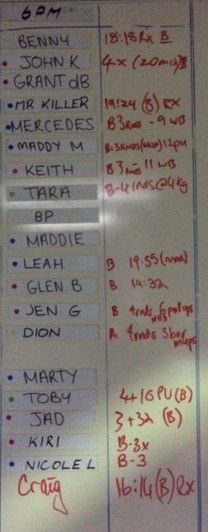 6PM
BENNY 18:18 Rx B
JOHN K 4x (20min) B
GRANT dB
MR KILLER 19:24 (B) RX
MERCEDES B 3 - 9 WB
MADDY M
KEITH B 3 - 11 WB
TARA B-4 rnds @4kg
BP
MADDIE
LEAH B 19:55 (mod)
GLEN B B 14:32
JEN G B 4rnds
DION A 4rnds 3bar
MARTY
TOBY 4+16PU (B)
JAD 3+32 (B)
KIRI B-3x
NICOLE L B-3
Craig 16:14 (B) Rx